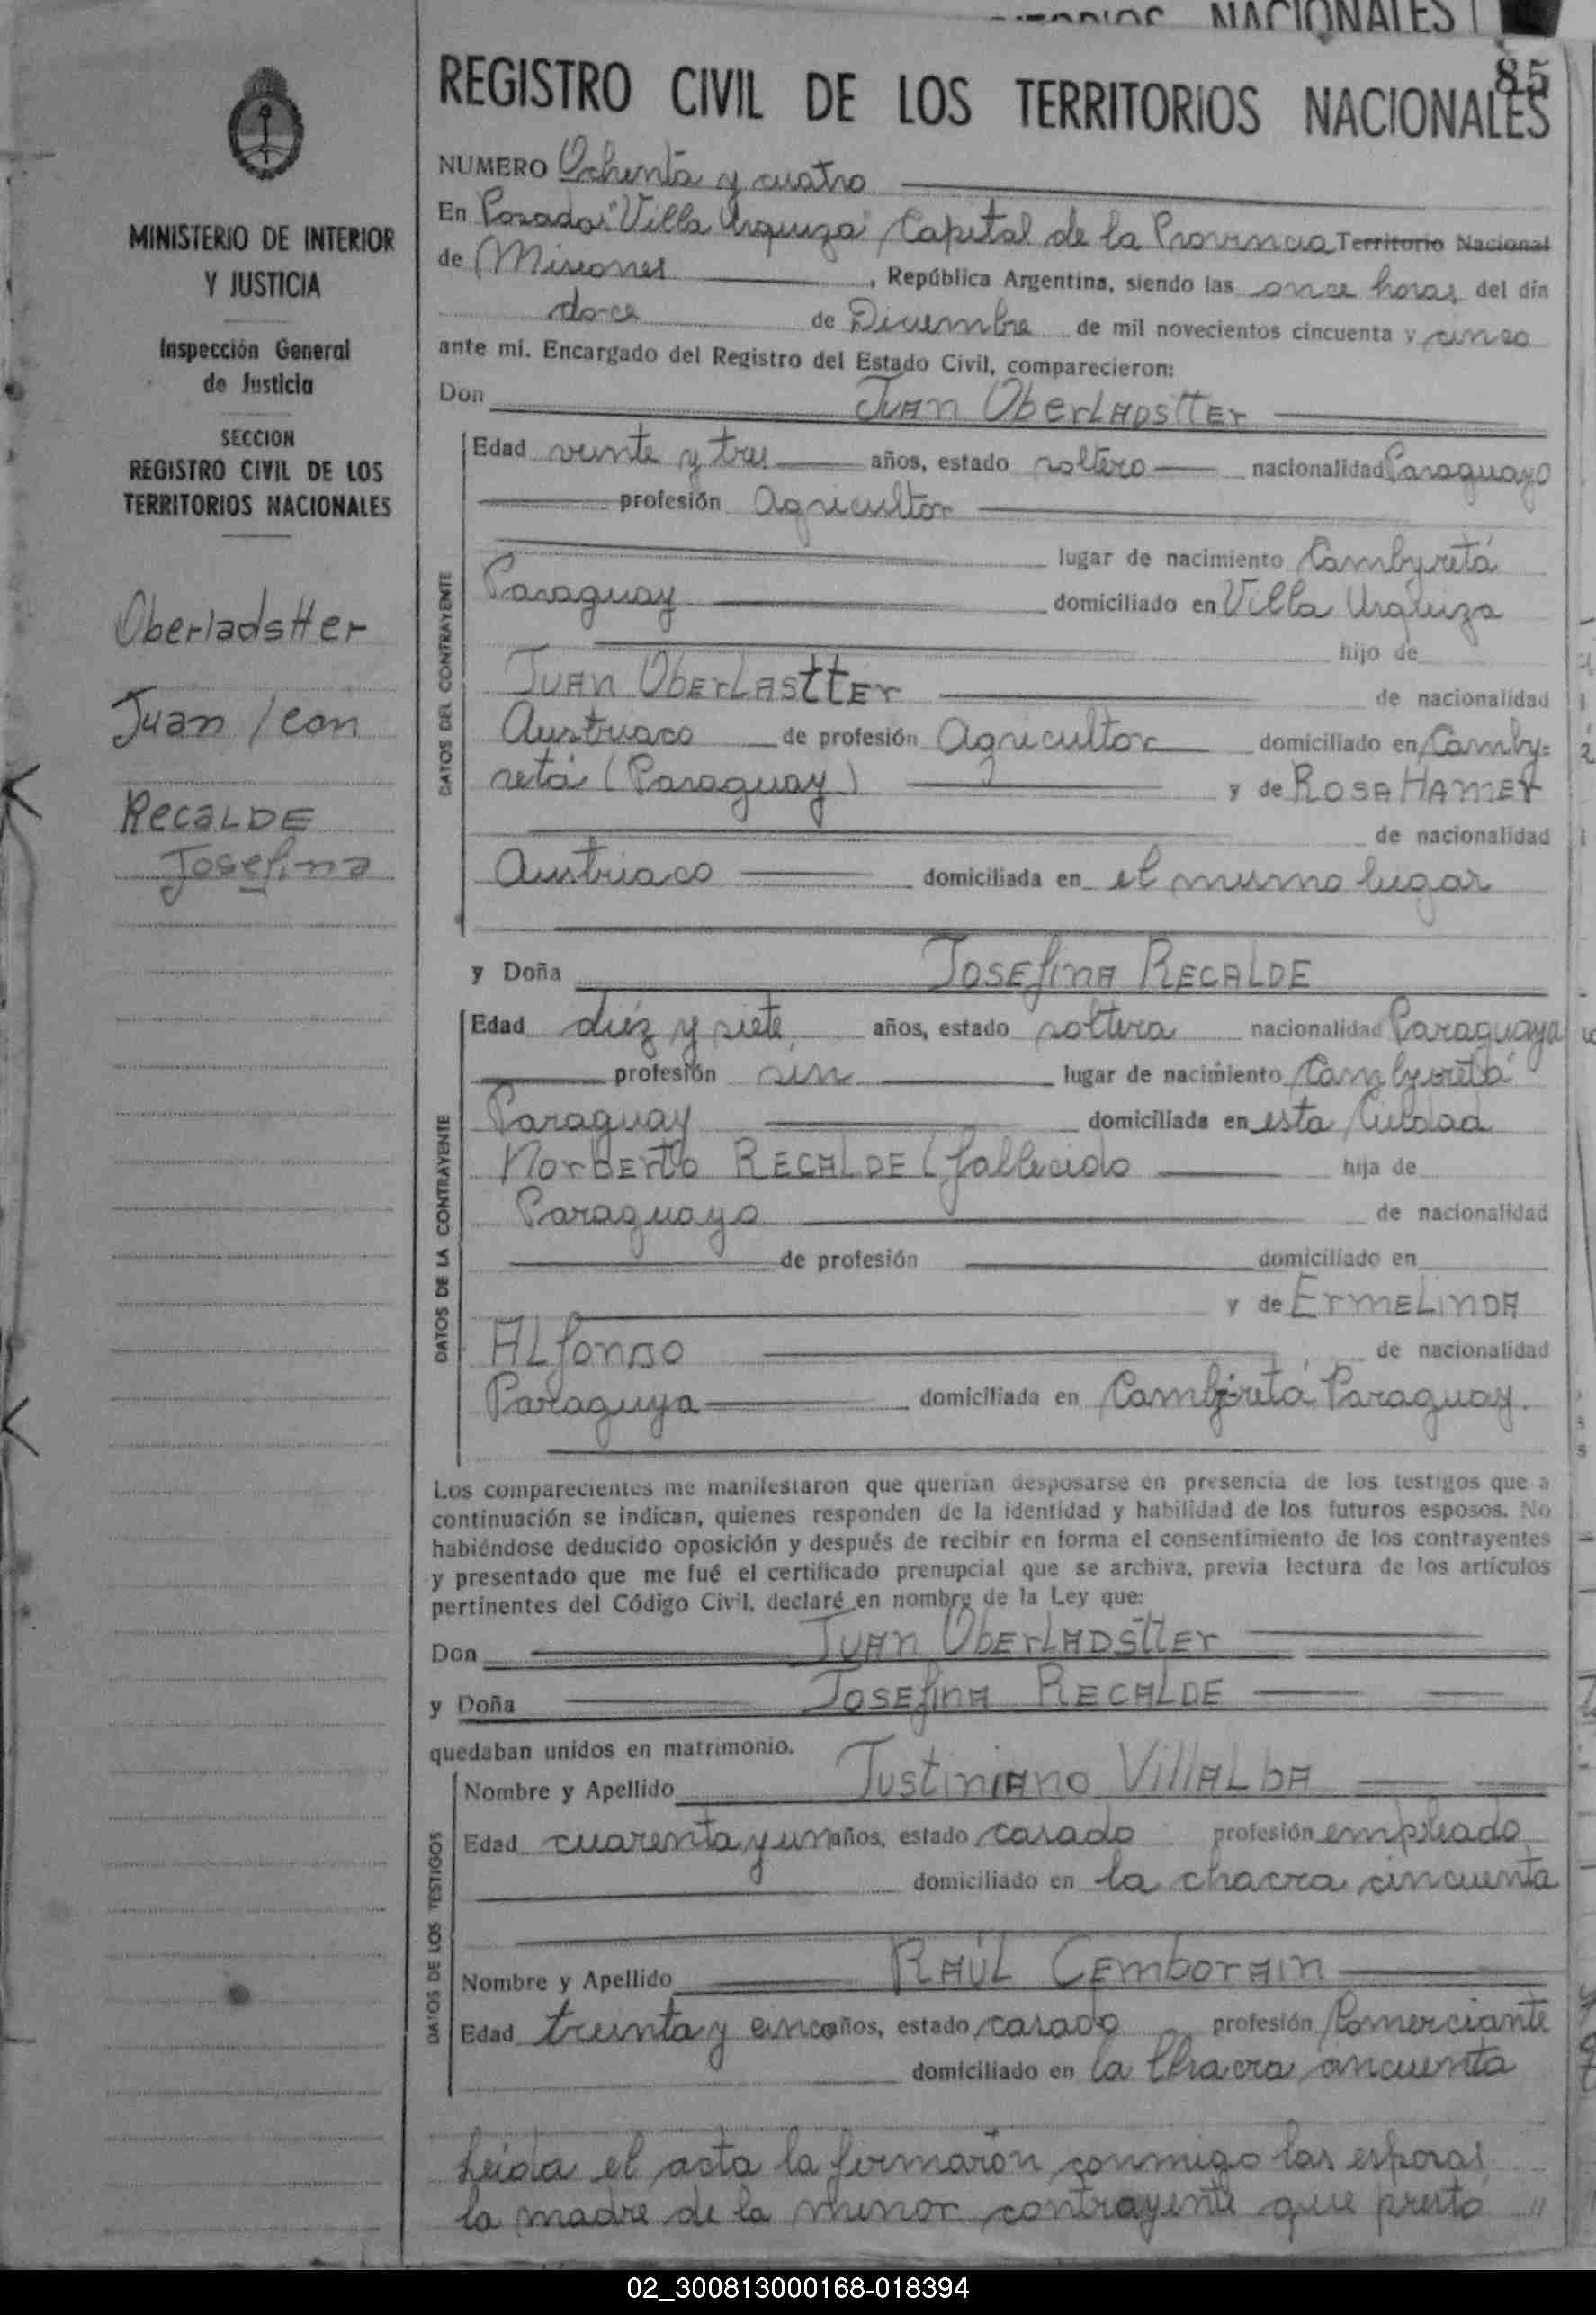 NACIONALES
85
REGISTRO CIVIL DE LOS TERRITORIOS NACIONALES
MINISTERIO DE INTERIOR
Y JUSTICIA
Inspección General
de Justicia
SECCION
REGISTRO CIVIL DE LOS
TERRITORIOS NACIONALES
Oberladstter
Juan / con
RecaLDE
Josefina
NUMERO Ochenta y cuatro
En Posadas "Villa Urquiza" Capital de la Provincia Territorio Nacional
de Misiones, República Argentina, siendo las once horas del día
doce de Diciembre de mil novecientos cincuenta y cinco
ante mí. Encargado del Registro del Estado Civil, comparecieron:
Don Juan OberLADStter
DATOS DEL CONTRAYENTE
Edad veinte y tres años, estado soltero nacionalidad Paraguayo
profesión Agricultor
lugar de nacimiento Cambyretá
Paraguay domiciliado en Villa Urquiza
hijo de
Juan OberLAstter de nacionalidad
Austriaco de profesión Agricultor domiciliado en Camby=
retá (Paraguay) y de ROSA HAMER
de nacionalidad
Austriaco domiciliada en el mismo lugar
y Doña JOSEfinA RECALDE
DATOS DE LA CONTRAYENTE
Edad diéz y siete, años, estado soltera nacionalidad Paraguaya
profesión sin lugar de nacimiento Cambyretá
Paraguay domiciliada en esta Ciudad
NorBErto RECALDE (fallecido hija de
Paraguayo de nacionalidad
de profesión domiciliado en
y de ERMELINDA
ALfonso de nacionalidad
Paraguya domiciliada en Cambyretá Paraguay.
Los comparecientes me manifestaron que querían desposarse en presencia de los testigos que a
continuación se indican, quienes responden de la identidad y habilidad de los futuros esposos. No
habiéndose deducido oposición y después de recibir en forma el consentimiento de los contrayentes
y presentado que me fué el certificado prenupcial que se archiva, previa lectura de los artículos
pertinentes del Código Civil, declaré en nombre de la Ley que:
Don JUAn OberLADStter
y Doña JOSEfinA RECALDE
quedaban unidos en matrimonio.
DATOS DE LOS TESTIGOS
Nombre y Apellido JustiniAno VillALbA
Edad cuarenta y un años, estado casado profesión empleado
domiciliado en la chacra cincuenta
Nombre y Apellido RAÚL CEmborAin
Edad treinta y cinco años, estado casado profesión Comerciante
domiciliado en la Chacra cincuenta
Leida el acta la firmarón conmigo las esposas
la madre de la menor contrayente que prestó "
02_300813000168-018394